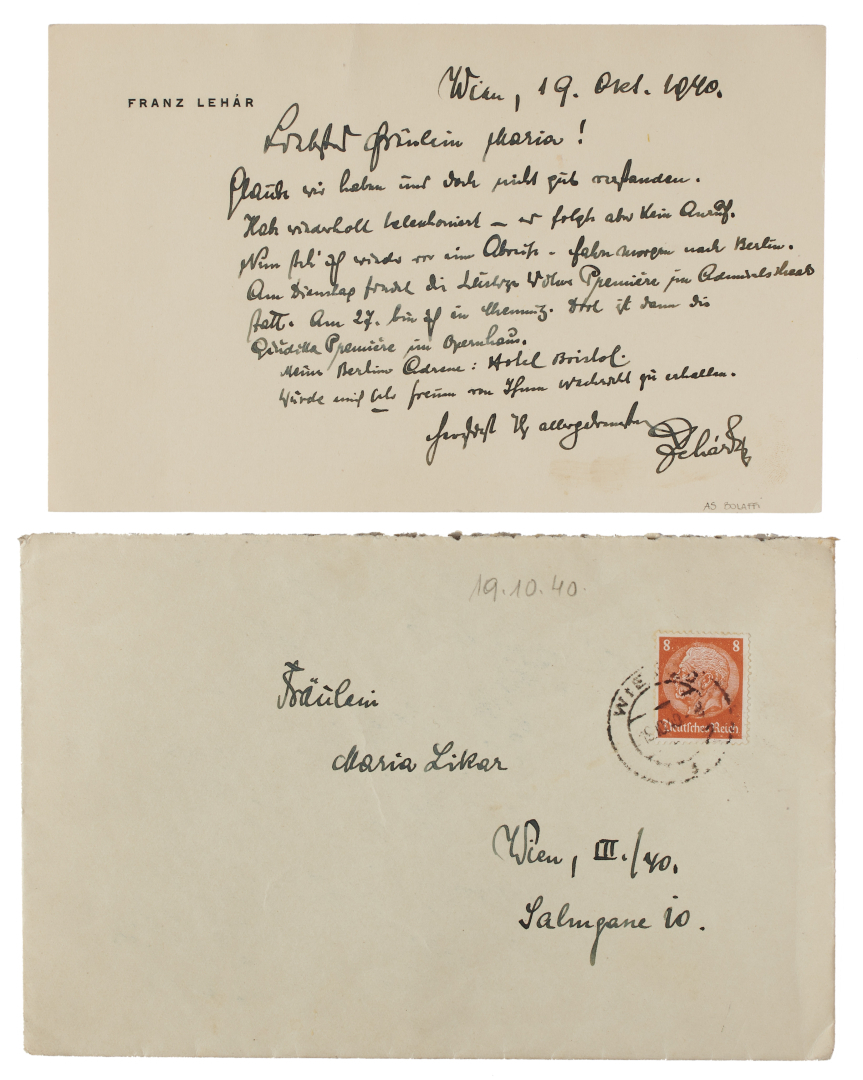 FRANZ LEHÁR
Wien, 19. Okt. 1940.
Liebstes Fräulein Maria!
Glaube wir haben uns doch nicht gut verstanden.
Habe wiederholt telephoniert – es folgte aber kein Anruf.
Nun steh' ich wieder vor einer Abreise – fahre morgen nach Berlin.
Am Dienstag findet die Lustige Witwe Première im Admiralspalast
statt. Am 27. bin ich in Chemnitz. Dort ist dann die
Giuditta Première im Opernhaus.
Meine Berliner Adresse: Hotel Bristol.
Würde mich sehr freuen von Ihnen Nachricht zu erhalten.
Herzlichst Ihr allergetreuester
Lehár
AS BOLAFFI
19.10.40.
8 8
Deutsches Reich
WIEN
Fräulein
Maria Likar
Wien, III./40.
Salmgasse 10.